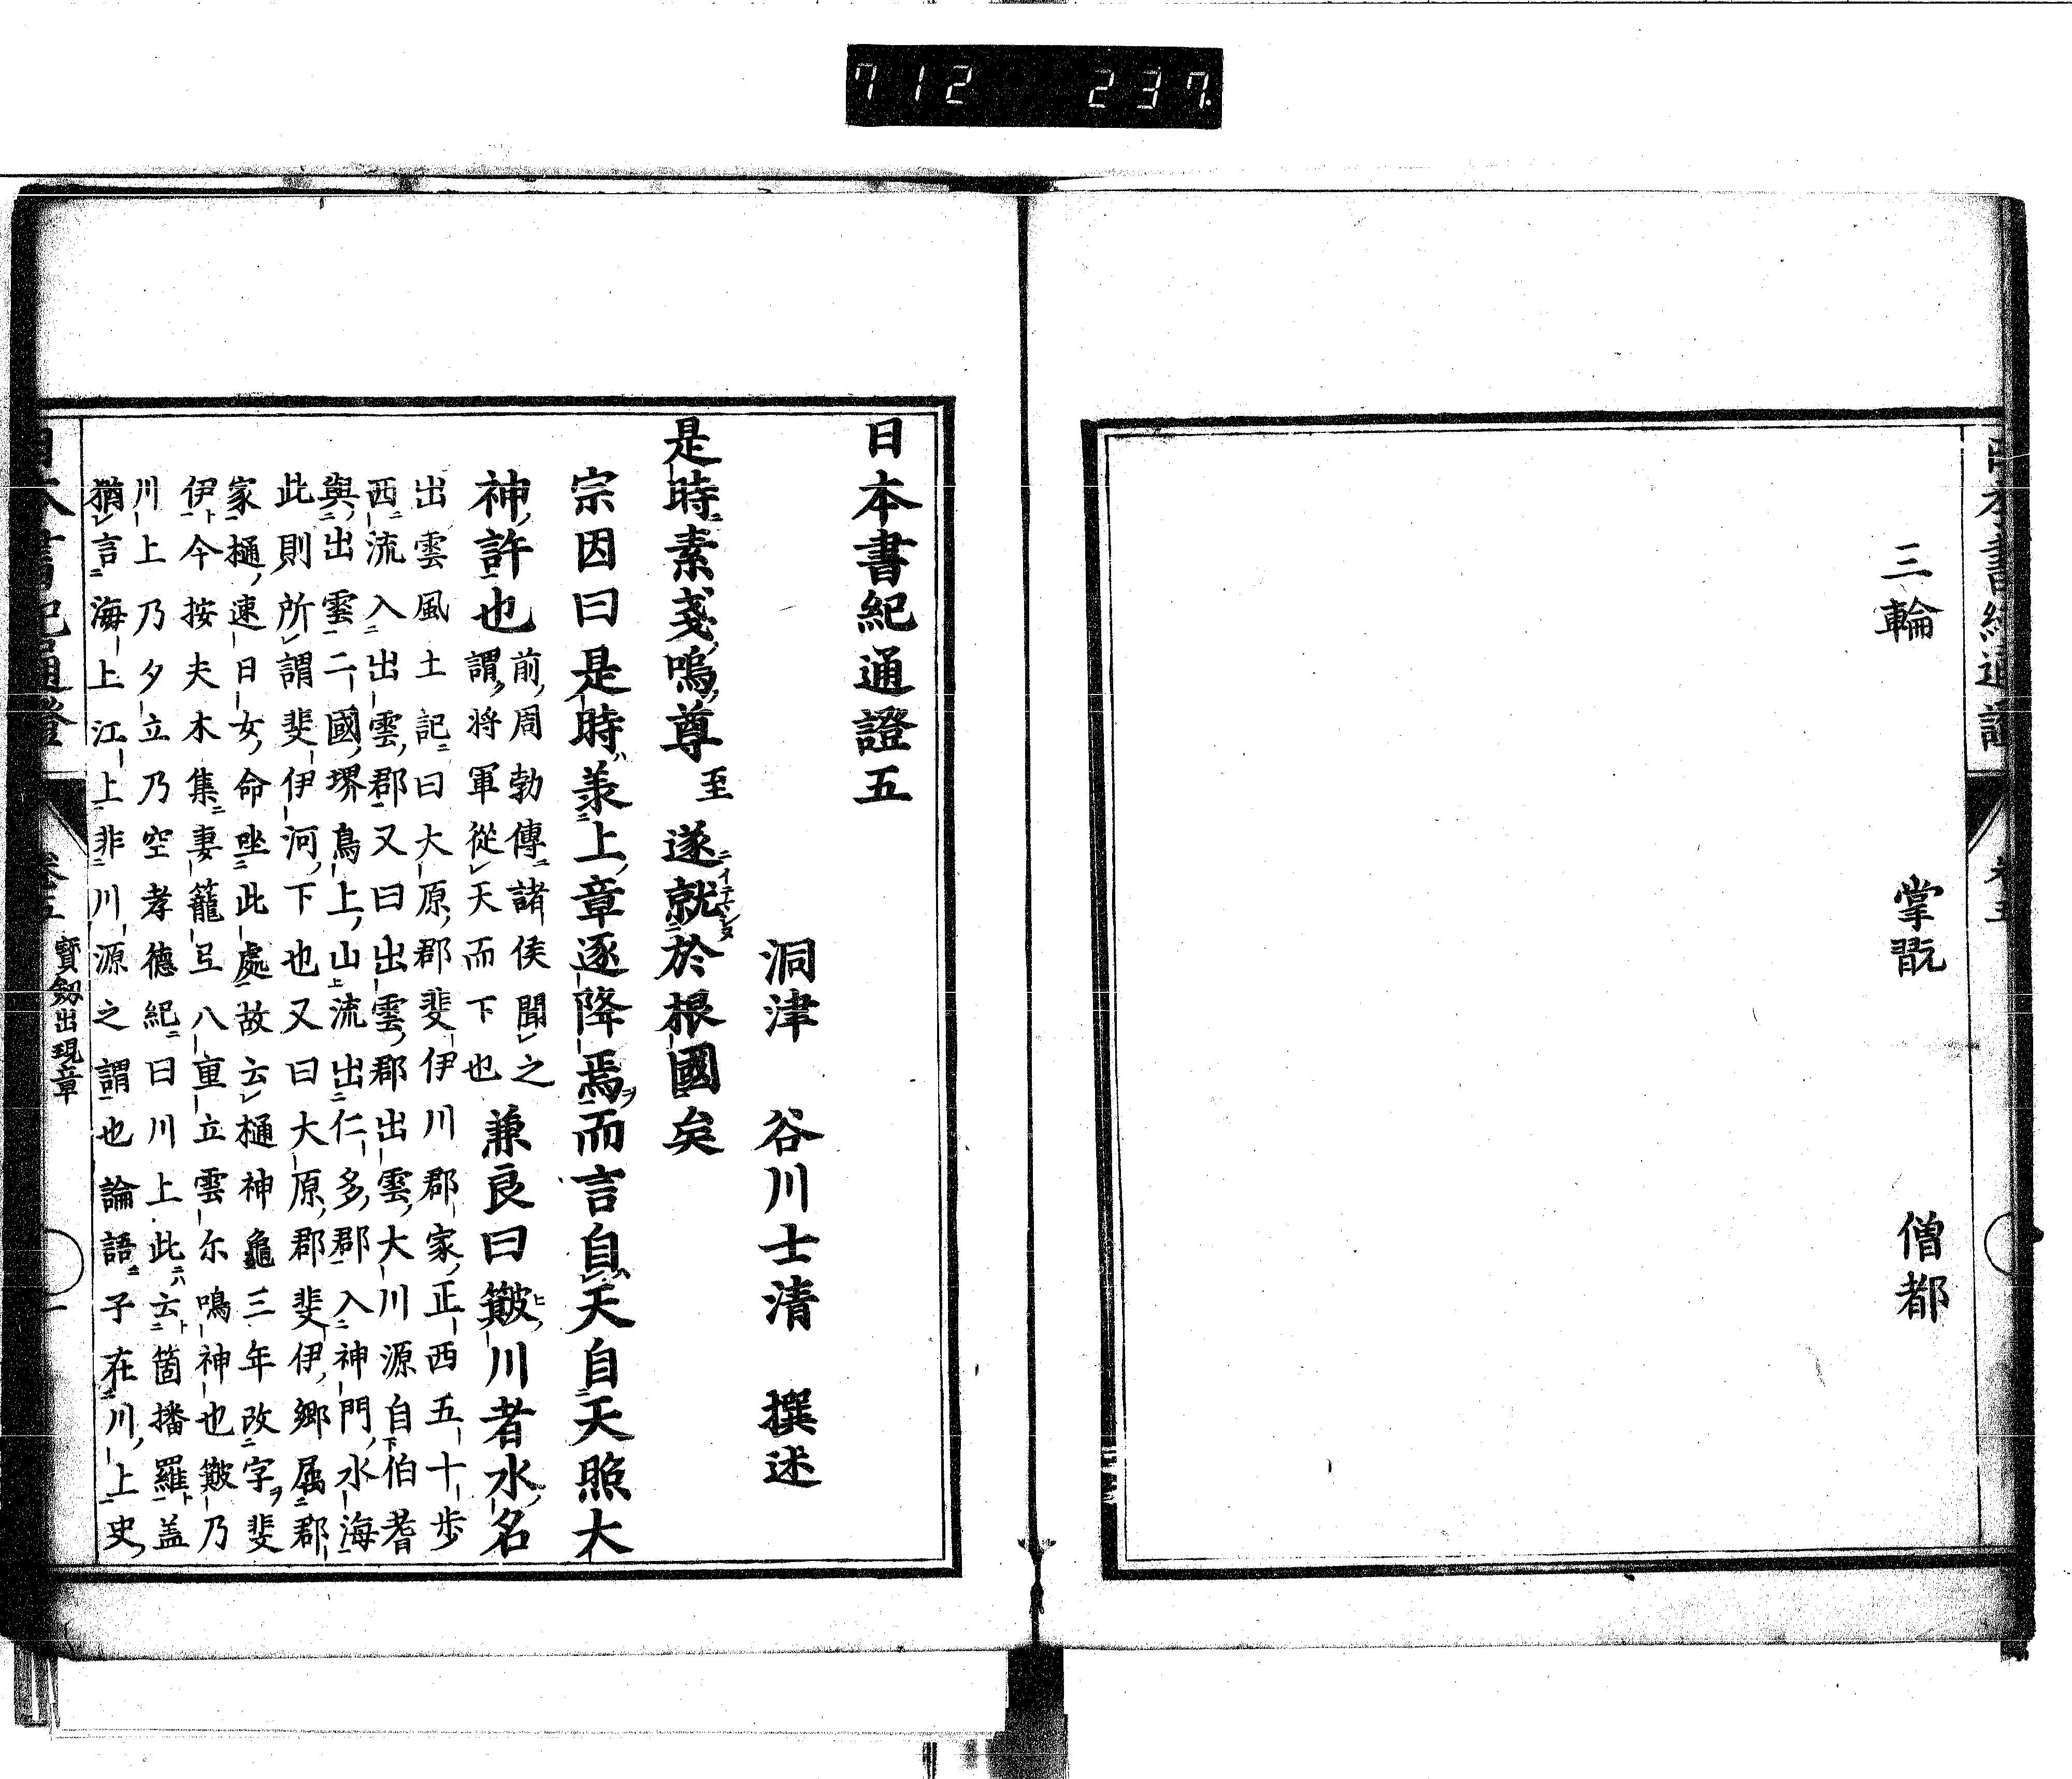 712 237
日本書紀通證
三輪 掌翫 僧都
日本書紀通證五
洞津 谷川士清 撰述
是時素戔嗚尊至遂就於根國矣
宗因曰是時羕上章逐降焉而言自天自天照大
神許也
前周勃傳諸侯聞之
謂將軍從天而下也
兼良曰簸川者水名
出雲風土記曰大原郡斐伊川郡家正西五十歩
西流入出雲郡又曰出雲郡出雲大川源自伯耆
與出雲二國堺鳥上山流出仁多郡入神門水海
此則所謂斐伊河下也又曰大原郡斐伊郷属郡
家樋速日女命坐此處故云樋神龜三年改字斐
伊今按夫木集妻籠㠯八重立雲尓鳴神也簸乃
川上乃夕立乃空孝德紀曰川上此云箇播羅盖
猶言海上江上非川源之謂也論語子在川上史
日本書紀通證 卷五 寳劔出現章 一